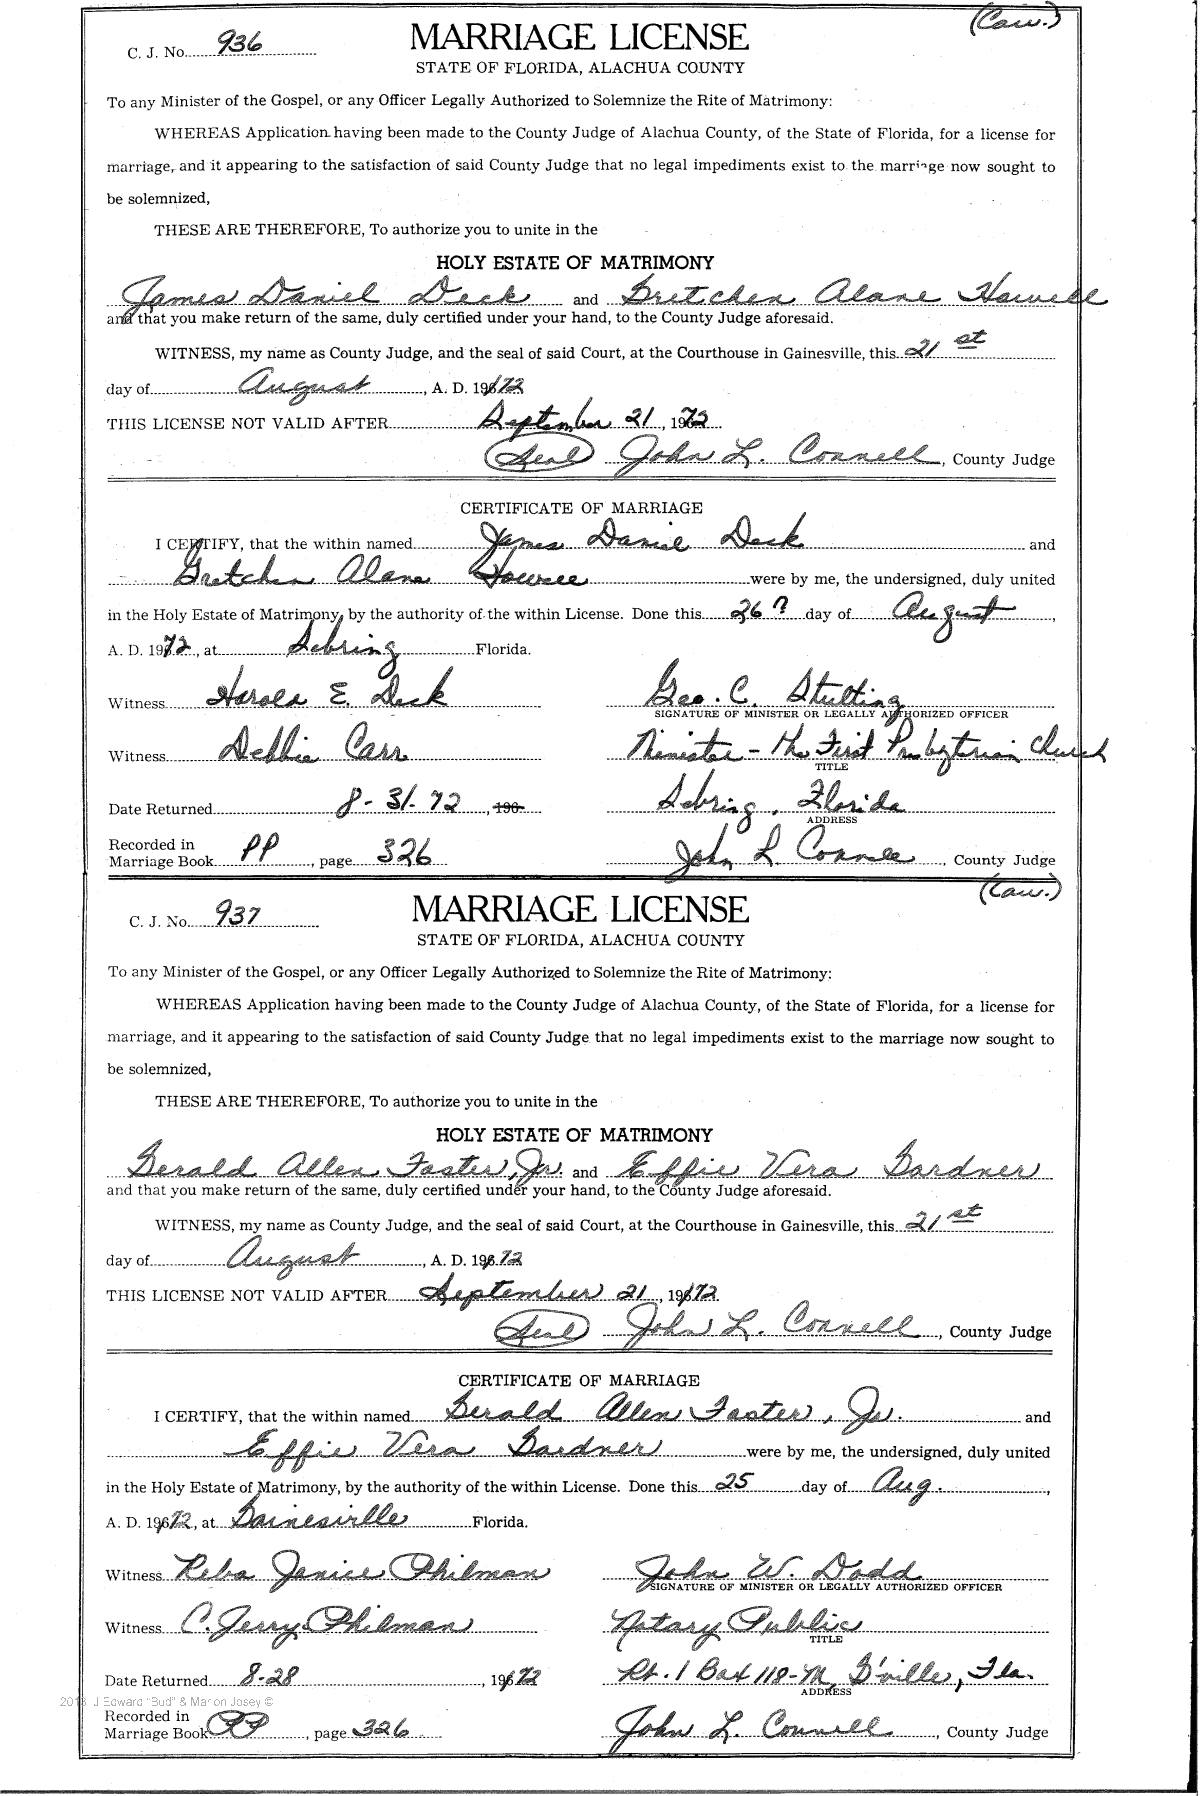 (Cau.)
C. J. No. 936 MARRIAGE LICENSE
STATE OF FLORIDA, ALACHUA COUNTY
To any Minister of the Gospel, or any Officer Legally Authorized to Solemnize the Rite of Matrimony:
WHEREAS Application having been made to the County Judge of Alachua County, of the State of Florida, for a license for
marriage, and it appearing to the satisfaction of said County Judge that no legal impediments exist to the marriage now sought to
be solemnized,
THESE ARE THEREFORE, To authorize you to unite in the
HOLY ESTATE OF MATRIMONY
James Daniel Deck and Gretchen Alane Howell
and that you make return of the same, duly certified under your hand, to the County Judge aforesaid.
WITNESS, my name as County Judge, and the seal of said Court, at the Courthouse in Gainesville, this 21st
day of August, A. D. 1972
THIS LICENSE NOT VALID AFTER September 21, 1972
(Seal) John L. Connell, County Judge
CERTIFICATE OF MARRIAGE
I CERTIFY, that the within named James Daniel Deck and
Gretchen Alane Howell were by me, the undersigned, duly united
in the Holy Estate of Matrimony, by the authority of the within License. Done this 26? day of August,
A. D. 1972, at Sebring Florida.
Witness Harold E. Deck Geo. C. Stulting
SIGNATURE OF MINISTER OR LEGALLY AUTHORIZED OFFICER
Witness Debbie Carr Minister - the First Presbyterian Church
TITLE
Date Returned 8-31-72, 196 Sebring, Florida
ADDRESS
Recorded in
Marriage Book PP, page 326 John L. Connell, County Judge
(Cau.)
C. J. No. 937 MARRIAGE LICENSE
STATE OF FLORIDA, ALACHUA COUNTY
To any Minister of the Gospel, or any Officer Legally Authorized to Solemnize the Rite of Matrimony:
WHEREAS Application having been made to the County Judge of Alachua County, of the State of Florida, for a license for
marriage, and it appearing to the satisfaction of said County Judge that no legal impediments exist to the marriage now sought to
be solemnized,
THESE ARE THEREFORE, To authorize you to unite in the
HOLY ESTATE OF MATRIMONY
Gerald Allen Foster, Jr. and Effie Vera Gardner
and that you make return of the same, duly certified under your hand, to the County Judge aforesaid.
WITNESS, my name as County Judge, and the seal of said Court, at the Courthouse in Gainesville, this 21st
day of August, A. D. 1972
THIS LICENSE NOT VALID AFTER September 21, 1972
(Seal) John L. Connell, County Judge
CERTIFICATE OF MARRIAGE
I CERTIFY, that the within named Gerald Allen Foster, Jr. and
Effie Vera Gardner were by me, the undersigned, duly united
in the Holy Estate of Matrimony, by the authority of the within License. Done this 25 day of Aug.,
A. D. 1972, at Gainesville Florida.
Witness Reba Janice Philman John W. Dodd
SIGNATURE OF MINISTER OR LEGALLY AUTHORIZED OFFICER
Witness C. Jerry Philman Notary Public
TITLE
Date Returned 8-28, 1972 Rt. 1 Box 118-M, G'ville, Fla.
ADDRESS
2013 J Edward "Bud" & Marion Josey ©
Recorded in
Marriage Book PP, page 326 John L. Connell, County Judge